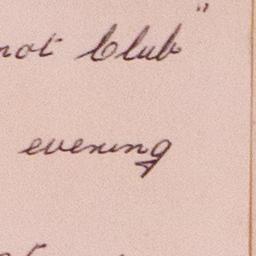 not Club"
evening